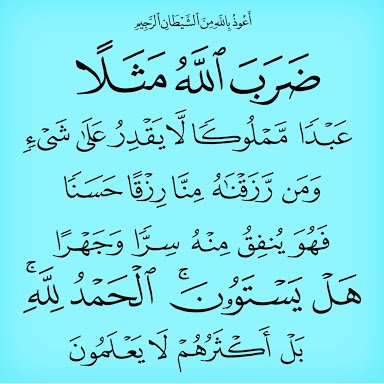 أَعُوذُ بِاللَّهِ مِنَ الشَّيْطَانِ الرَّجِيمِ
ضَرَبَ ٱللَّهُ مَثَلًا
عَبْدًا مَّمْلُوكًا لَّا يَقْدِرُ عَلَىٰ شَىْءٍ
وَمَن رَّزَقْنَٰهُ مِنَّا رِزْقًا حَسَنًا
فَهُوَ يُنفِقُ مِنْهُ سِرًّا وَجَهْرًا
هَلْ يَسْتَوُۥنَ ۚ ٱلْحَمْدُ لِلَّهِ ۚ
بَلْ أَكْثَرُهُمْ لَا يَعْلَمُونَ